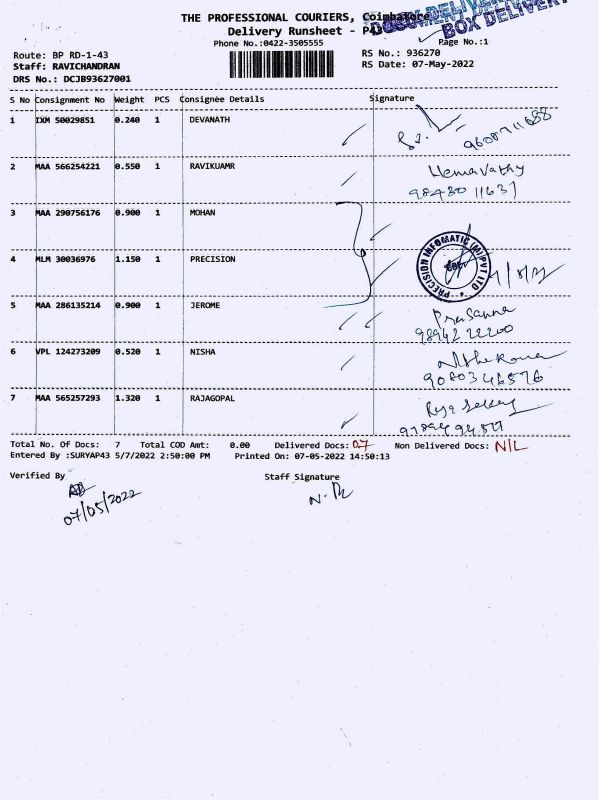 THE PROFESSIONAL COURIERS, Coimbatore
Delivery Runsheet - P43
BOX DELIVERY
Phone No.:0422-3505555
Page No.:1
Route: BP RD-1-43
RS No.: 936270
Staff: RAVICHANDRAN
RS Date: 07-May-2022
DRS No.: DCJB93627001
S No Consignment No Weight PCS Consignee Details Signature
1 IXM 50029851 0.240 1 DEVANATH
9600711688
2 MAA 566254221 0.550 1 RAVIKUAMR Hemavathy
98480 11637
3 MAA 290756176 0.900 1 MOHAN
4 MLM 30036976 1.150 1 PRECISION
PRECISION INFOMATIC (M) PVT LTD
CBE
5 MAA 286135214 0.900 1 JEROME Prasanna
98942 22200
6 VPL 124273209 0.520 1 NISHA
9080346576
7 MAA 565257293 1.320 1 RAJAGOPAL
Total No. Of Docs: 7 Total COD Amt: 0.00 Delivered Docs: 07 Non Delivered Docs: NIL
Entered By :SURYAP43 5/7/2022 2:50:00 PM Printed On: 07-05-2022 14:50:13
Verified By Staff Signature
07/05/2022